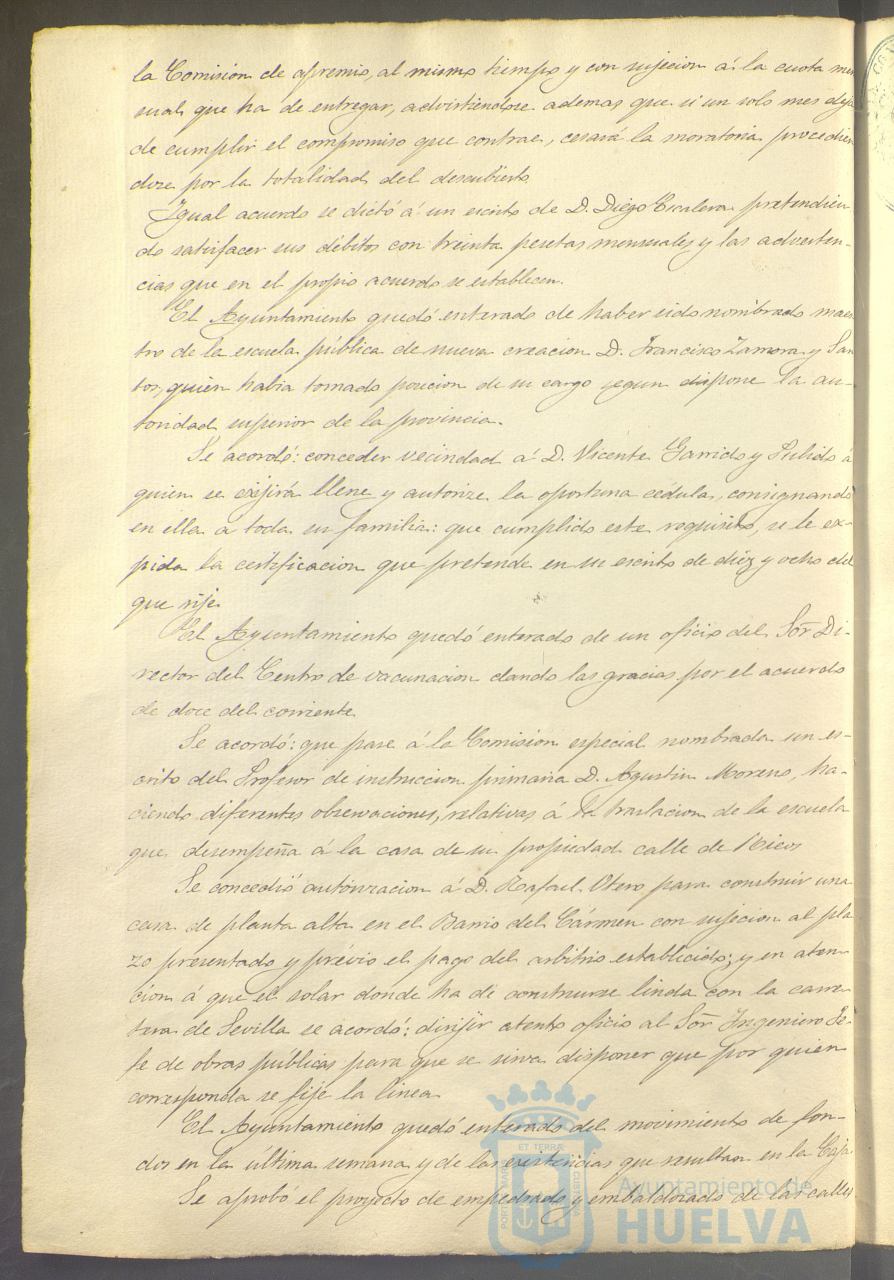 la Comisión de apremio, al mismo tiempo y con sujecion á la cuota men
sual que ha de entregar, advirtiendose ademas que si un solo mes deja
de cumplir el compromiso que contrae, cesará la moratoria procedien
dose por la totalidad del descubierto
Igual acuerdo se dictó á un escrito de D. Diego Escalera pretendien
do satisfacer sus débitos con treinta pesetas mensuales y las adverten-
cias que en el propio acuerdo se establecen.
El Ayuntamiento quedó enterado de haber sido nombrado maes
tro de la escuela pública de nueva creacion D. Francisco Zamora y San
tos, quien habia tomado posicion de su cargo segun dispone la au-
toridad superior de la provincia.
Se acordó: conceder vecindad á D. Vicente Garrido y Pulido á
quien se exijirá llene y autorize la oportuna cédula, consignando
en ella a toda su familia: que cumplido este requisito, se le ex-
pida la certificacion que pretende en su escrito de diez y ocho del
que rije.
El Ayuntamiento quedó enterado de un oficio del Sor Di-
rector del Centro de vacunacion dando las gracias por el acuerdo
de doce del corriente
Se acordó: que pase á la Comision especial nombrada un es-
crito del Profesor de instruccion primaria D. Agustin Moreno, ha-
ciendo diferentes observaciones, relativas á la traslacion de la escuela
que desempeña á la casa de su propiedad calle de Ricos
Se concedió autorizacion á D. Rafael Otero para construir una
casa de planta alta en el Barrio del Cármen con sujecion al pla
zo presentado y prévio el pago del arbitrio establecido; y en aten-
cion á que el solar donde ha de construirse linda con la carre-
tera de Sevilla se acordó: dirijir atento oficio al Sor Ingeniero Je-
fe de obras públicas para que se sirva disponer que por quien
corresponda se fije la linea
El Ayuntamiento quedó enterado del movimiento de fon-
dos en la última semana y de las existencias que resultan en la Caja
Se aprobó el proyecto de empedrado y embaldosado de las calles
Ayuntamiento de
HUELVA